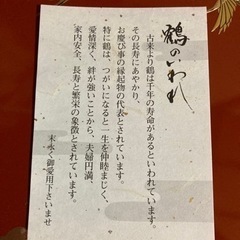 鶴のいわれ
古来より鶴は千年の寿命があるといわれています
その長寿にあやかり、
お慶び事の縁起物の代表とされています。
特に鶴は、つがいになると一生を仲睦まじく、
愛情深く、絆が強いことから、夫婦円満、
家内安全、長寿と繁栄の象徴とされています。
末永く御愛用下さいませ